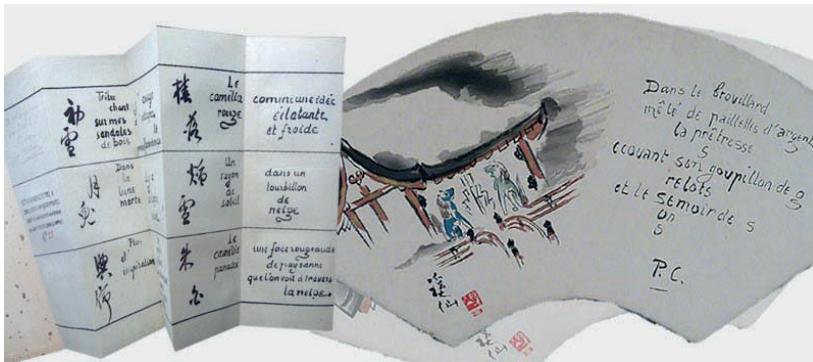 Trébu
chant
sur mes
sandales
de bois
Dans
la
lune
morte
Plus
d'
inspiration
雪
月
Le
camélia
rouge
comme une idée
éclatante
et froide
雪
Un
rayon
de
soleil
dans un
tourbillon
de
neige
朱
白
Le
camélia
panaché
une face rougeaude
de paysanne
que l'on voit à travers
la neige
Dans le brouillard
mêlé de paillettes d'argent
la prêtresse
s
ecouant son goupillon de g
relots
et le semoir de s
on
s
P.C.
溪仙